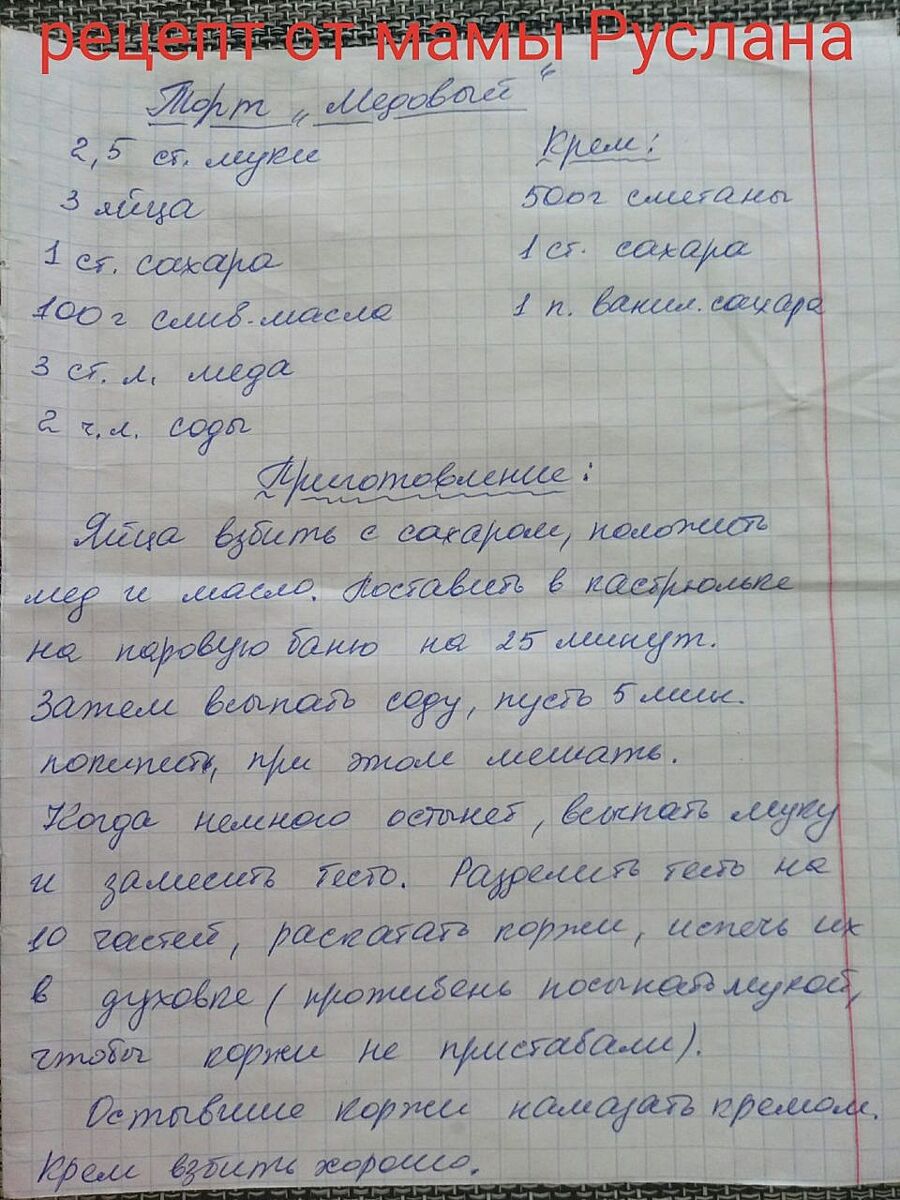 рецепт от мамы Руслана
Торт „Медовый“
2,5 ст. муки
3 яйца
1 ст. сахара
100 г слив. масла
3 ст. л. меда
2 ч.л. соды
Крем:
500г сметаны
1 ст. сахара
1 п. ванил. сахара
Приготовление:
Яйца взбить с сахаром, положить
мед и масло. Поставить в кастрюльке
на паровую баню на 25 минут.
Затем всыпать соду, пусть 5 мин.
покипеть, при этом мешать.
Когда немного остынет, всыпать муку
и замесить тесто. Разделить тесто на
10 частей, раскатать коржи, испечь их
в духовке (протибень посыпать мукой,
чтобы коржи не приставали).
Остывшие коржи намазать кремом.
Крем взбить хорошо.